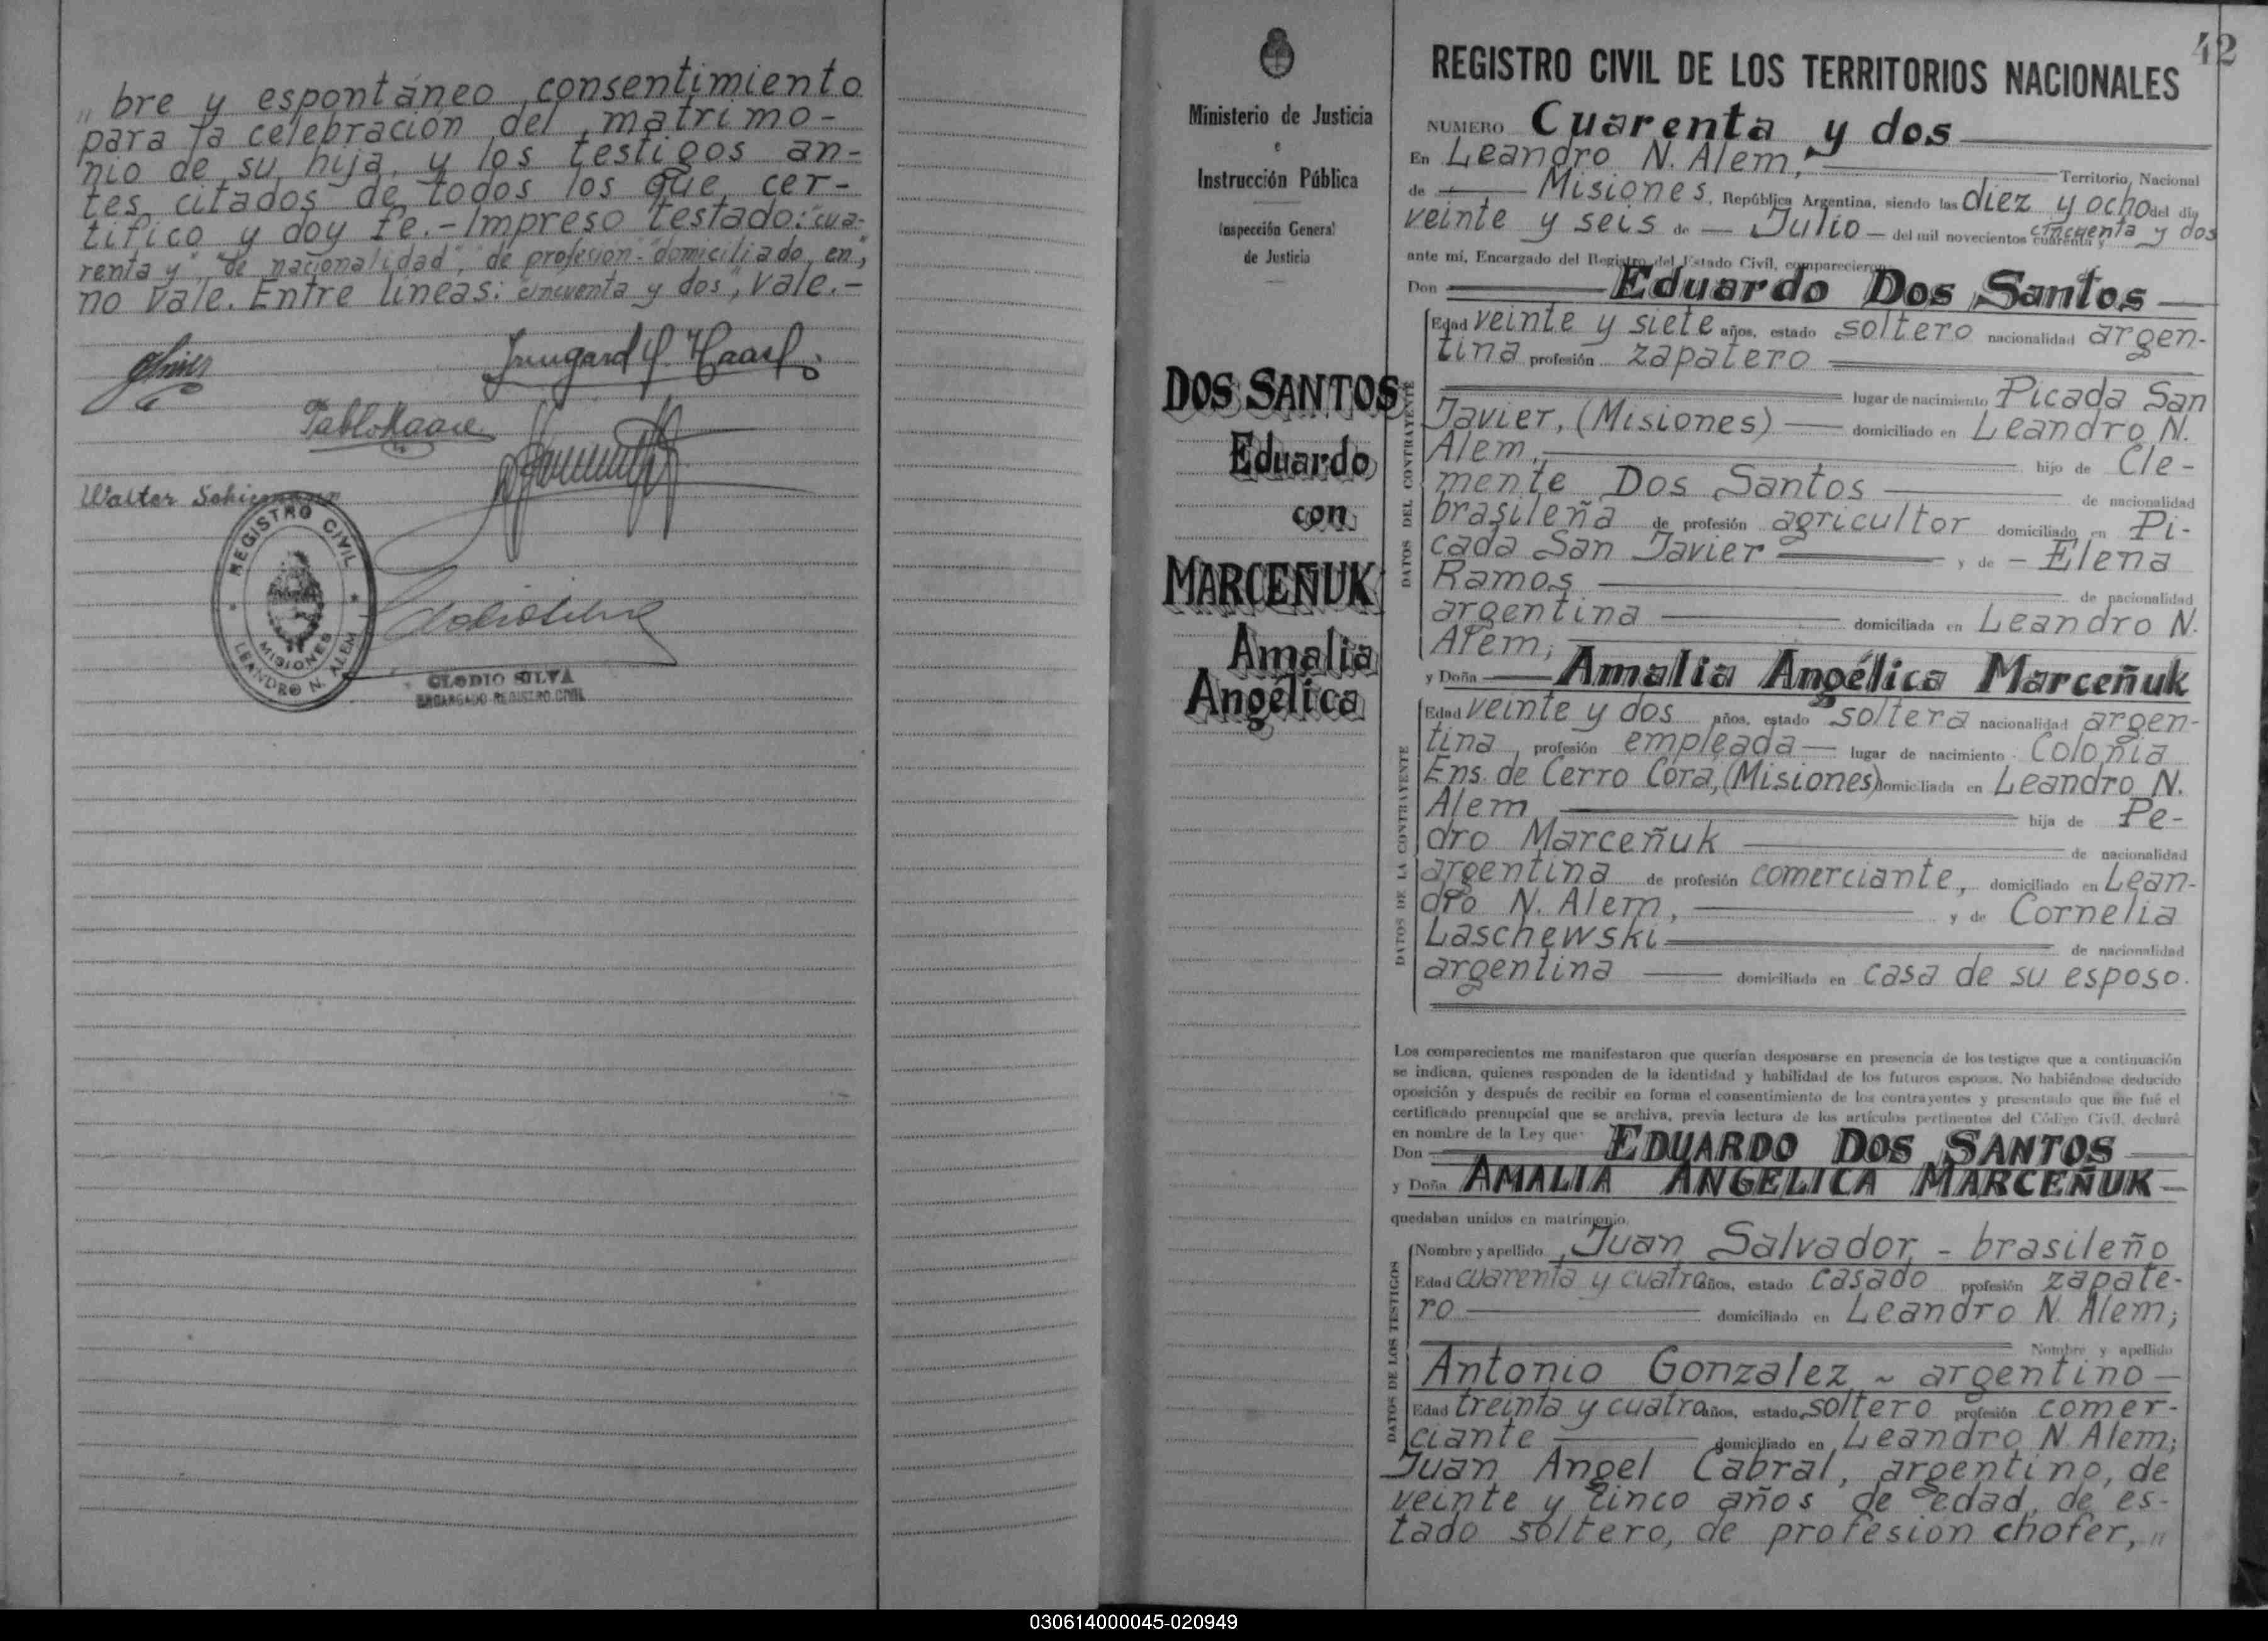 „ bre y espontáneo consentimiento
para la celebración del matrimo-
nio de su hija, y los testigos an-
tes citados de todos los que cer-
tifico y doy fe.-Impreso testado: "cua-
renta y", "de nacionalidad", "de profesión" "domiciliado en",
no vale. Entre líneas: cincuenta y dos", vale.-
Pablo Haase
Walter
REGISTRO CIVIL
MISIONES
LEANDRO N. ALEM
CLODIO SILVA
ENCARGADO REGISTRO CIVIL
Ministerio de Justicia
e
Instrucción Pública
Inspección General
de Justicia
DOS SANTOS
Eduardo
con
MARCEÑUK
Amalia
Angélica
42
REGISTRO CIVIL DE LOS TERRITORIOS NACIONALES
NUMERO Cuarenta y dos
En Leandro N. Alem, Territorio Nacional
de Misiones, República Argentina, siendo las diez y ocho del día
veinte y seis de Julio del mil novecientos cuarenta y cincuenta y dos
ante mí, Encargado del Registro del Estado Civil, comparecieron
Don Eduardo Dos Santos
DATOS DEL CONTRAYENTE
Edad veinte y siete años, estado soltero nacionalidad argen-
tina profesión zapatero
lugar de nacimiento Picada San
Javier, (Misiones) domiciliado en Leandro N.
Alem, hijo de Cle-
mente Dos Santos de nacionalidad
brasileña de profesión agricultor domiciliado en Pi-
cada San Javier y de - Elena
Ramos de nacionalidad
argentina domiciliada en Leandro N.
Alem;
y Doña Amalia Angélica Marceñuk
DATOS DE LA CONTRAYENTE
Edad veinte y dos años, estado soltera nacionalidad argen-
tina, profesión empleada lugar de nacimiento Colonia
Ens. de Cerro Corá, (Misiones) domiciliada en Leandro N.
Alem hija de Pe-
dro Marceñuk de nacionalidad
argentina de profesión comerciante, domiciliado en Lean-
dro N. Alem, y de Cornelia
Laschewski de nacionalidad
argentina domiciliada en casa de su esposo.
Los comparecientes me manifestaron que querían desposarse en presencia de los testigos que a continuación
se indican, quienes responden de la identidad y habilidad de los futuros esposos. No habiéndose deducido
oposición y después de recibir en forma el consentimiento de los contrayentes y presentado que me fué el
certificado prenupcial que se archiva, previa lectura de los artículos pertinentes del Código Civil, declaré
en nombre de la Ley que:
Don EDUARDO DOS SANTOS
y Doña AMALIA ANGELICA MARCEÑUK
quedaban unidos en matrimonio.
DATOS DE LOS TESTIGOS
Nombre y apellido Juan Salvador - brasileño
Edad cuarenta y cuatro años, estado casado profesión zapate-
ro domiciliado en Leandro N. Alem;
Nombre y apellido
Antonio Gonzalez ~ argentino
Edad treinta y cuatro años, estado soltero profesión comer-
ciante domiciliado en Leandro N. Alem;
Juan Angel Cabral, argentino, de
veinte y cinco años de edad, de es-
tado soltero, de profesión chofer, „
030614000045-020949